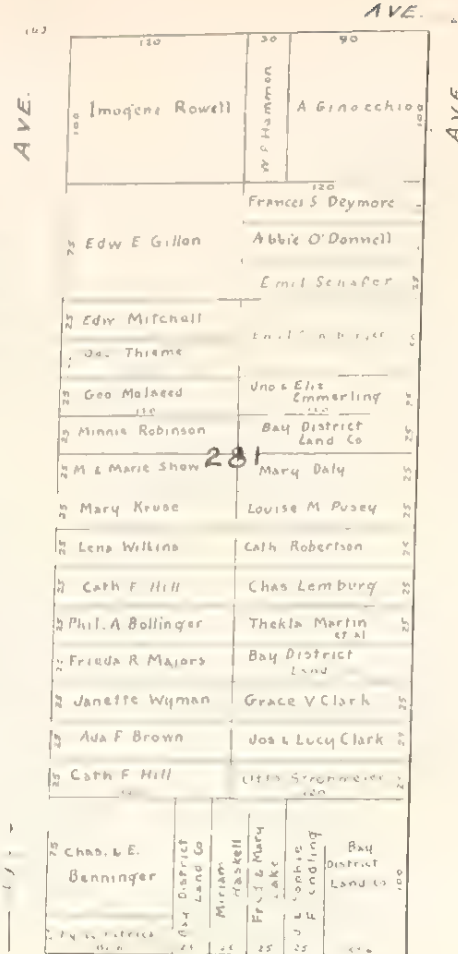 AVE.
120 30 90
AVE.
100
Imogene Rowell
W F Hammon
A Ginocchio
100
AVE
120
Frances S Deymore
75 Edw E Gillon
Abbie O'Donnell
Emil Schafer 25
25 Edw Mitchell
Thieme
25 Geo Malseed
120
Jno & Eliz
Emmerling
25
25 Minnie Robinson
Bay District
Land Co
25
281
25 M & Marie Show
Mary Daly 25
25 Mary Kruse
Louise M Pusey 25
25 Lena Wilkins
Cath Robertson 25
25 Cath F Hill
Chas Lemburg 25
25 Phil. A Bollinger
Thekla Martin
et al
25
25 Frieda R Majors
Bay District
Land
25 Janette Wyman
Grace V Clark 25
25 Ada F Brown
Jos & Lucy Clark 25
25 Cath F Hill
120
75 Chas. & E.
Benninger
Bay District
Land Co
Miriam
Haskell
Fred & Mary
Lake
Bay
District
Land Co
100
25 25 25